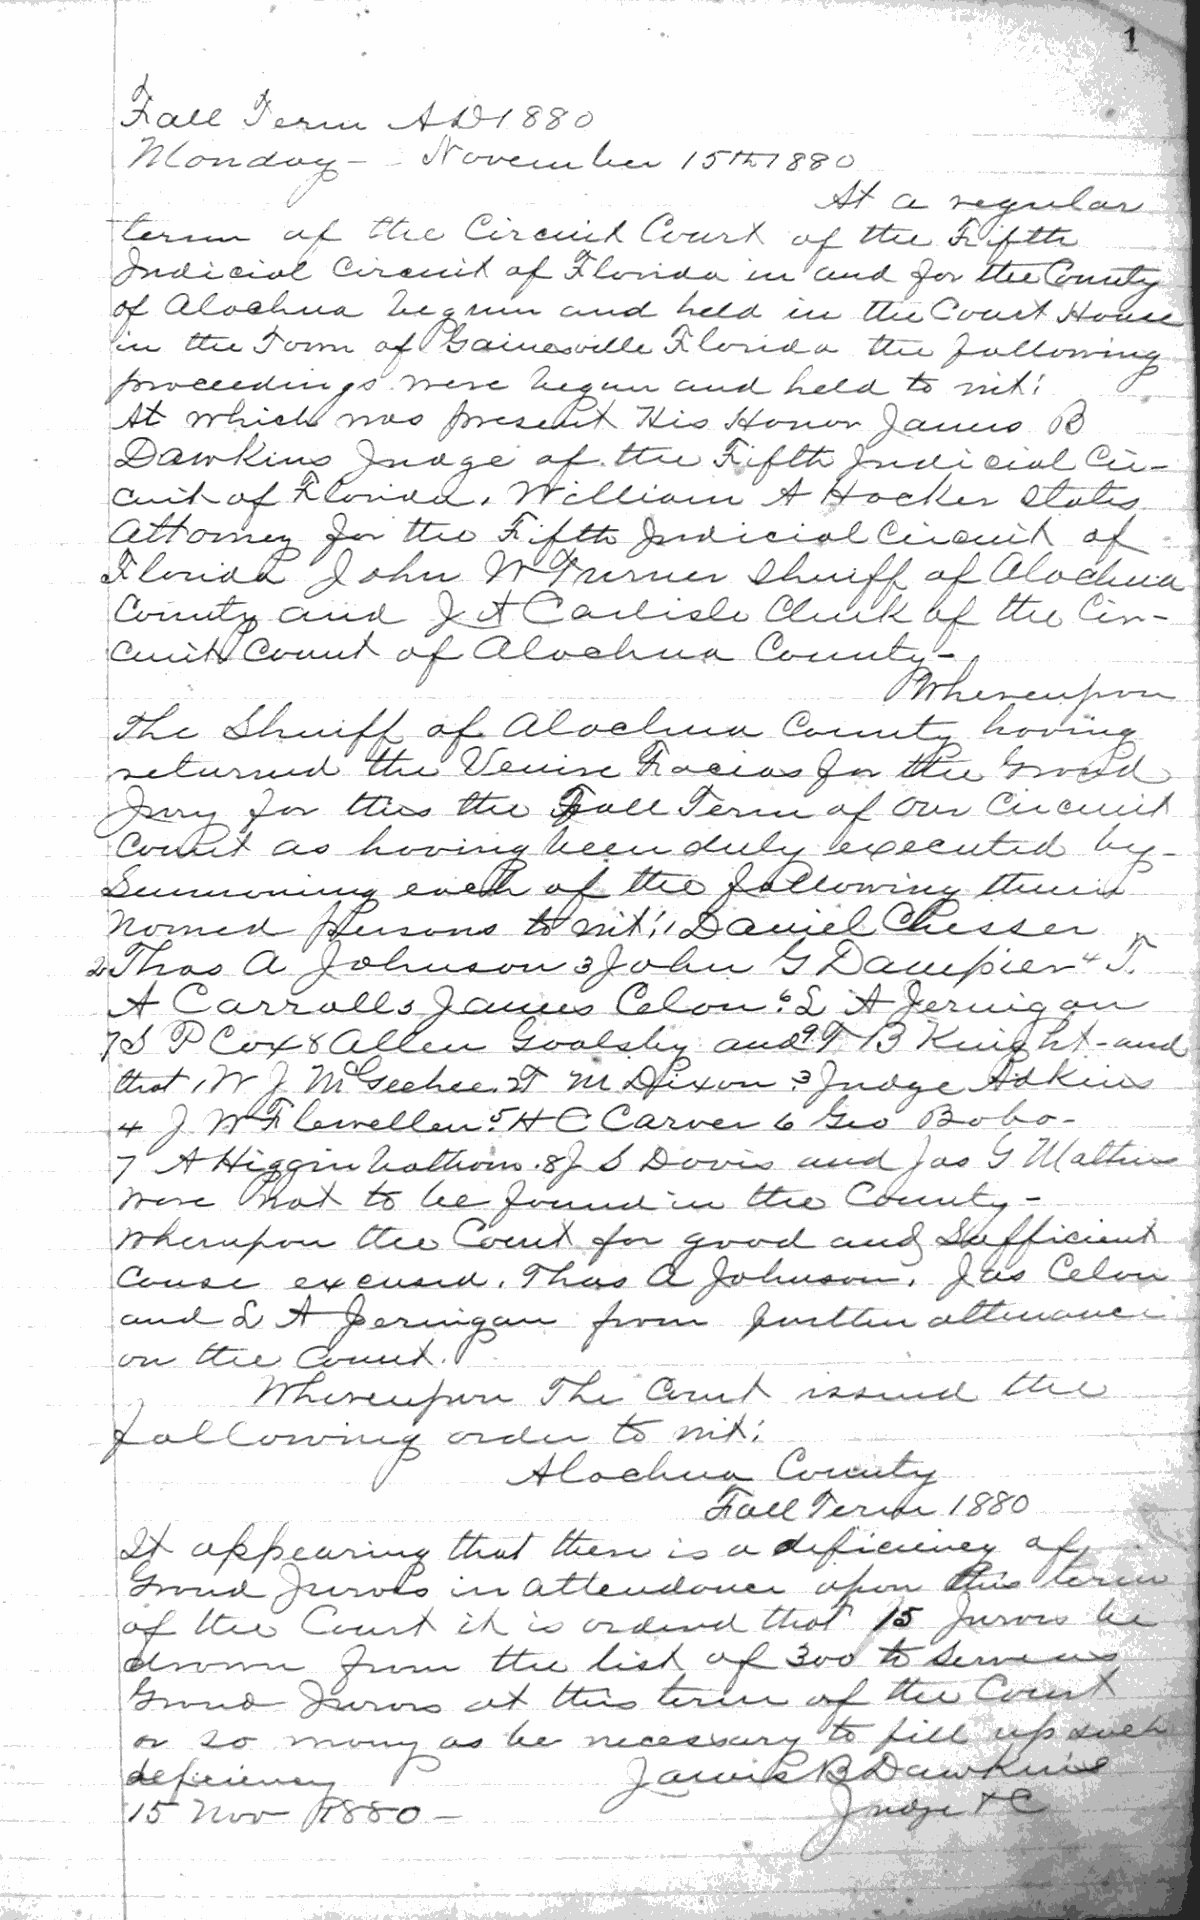 1
Fall Term AD 1880
Monday - November 15th 1880
At a regular
term of the Circuit Court of the Fifth
Judicial Circuit of Florida in and for the County
of Alachua begun and held in the Court House
in the Town of Gainesville Florida the following
proceedings were began and held to wit:
At which was present His Honor James B
Dawkins Judge of the Fifth Judicial Cir-
cuit of Florida, William A Hocker States
Attorney for the Fifth Judicial Circuit of
Florida John W Turner Sheriff of Alachua
County and J A Carlisle Clerk of the Cir-
cuit Court of Alachua County-
Whereupon
The Sheriff of Alachua County having
returned the Venire Facias for the Grand
Jury for this the Fall Term of our Circuit
Court as having been duly executed by-
Summoning each of the following therein
named persons to wit: 1 Daniel Chesser
2 Thos A Johnson 3 John G Dampier 4 T.
A Carroll 5 James Celon 6 L A Jernigan
7 S P Cox 8 Allen Goolsby and 9 T B Knight - and
that 1 W J McGeehee. 2 T M Dixon 3 Judge Adkins
4 J W Flewellen 5 H C Carver 6 Geo Bobo-
7 A Higginbothom. 8 J S Davis and Jas G Mathis
were not to be found in the County-
Wherupon the Court for good and Sufficient
Cause excused. Thos A Johnson, Jas Celon
and L A Jernigan from further attenance
on the Court.
Whereupon The Court issued the
following order to wit:
Alachua County
Fall Term 1880
It appearing that there is a deficiency of
Grand Jurors in attendance upon this term
of the Court it is ordered that 15 Jurors be
drawn from the list of 300 to serve as
Grand Jurors at this term of the Court
or so many as be necessary to fill up such
deficiency James B Dawkins
15 Nov 1880 - Judge &C